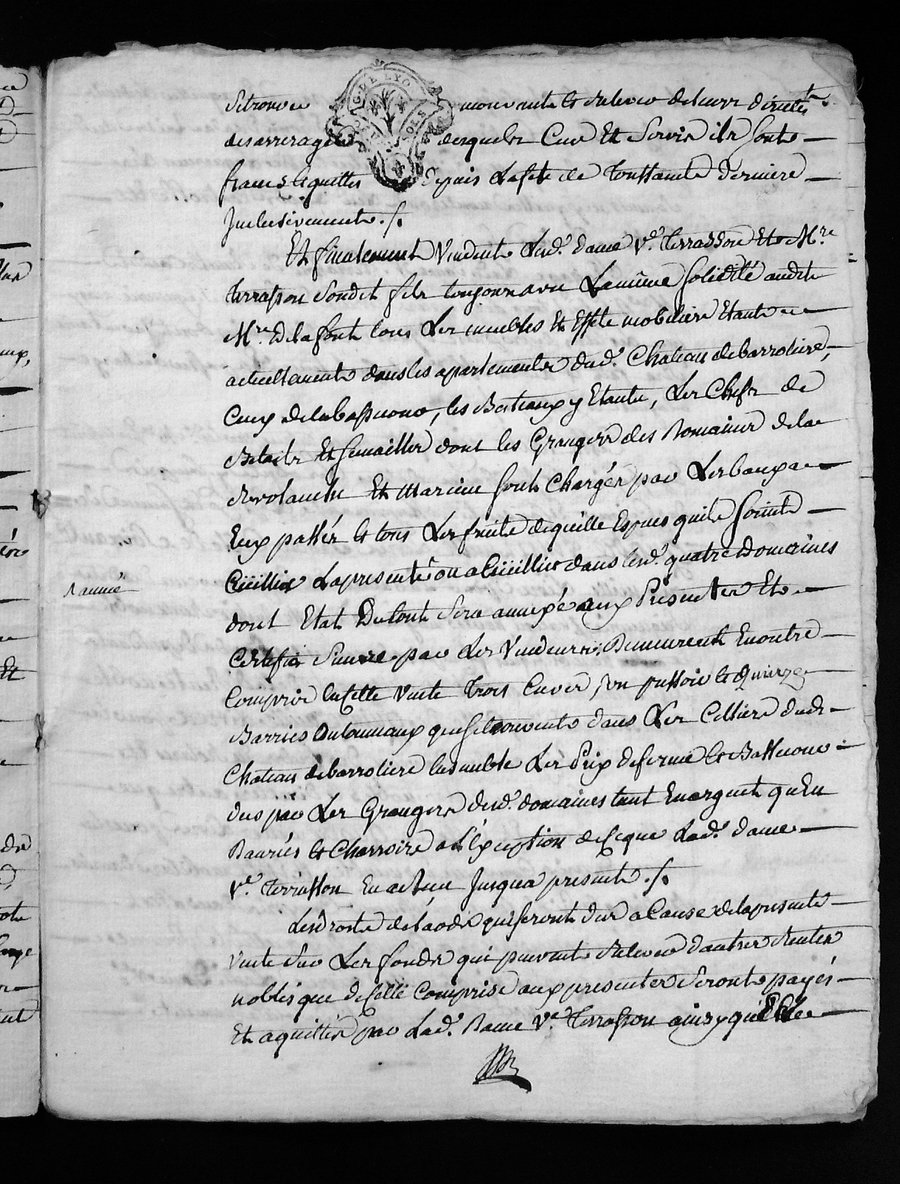 se trouve mouvants et relever de leurs directes
des arrerages desquels Cens Et Servis ils sont
francs & quittes depuis la fete de Toussaints derniere
Jnclusivement ./.
Et finalement Vendent Lad.e dame V.e Terrasson Et M.re
Terrasson Sondit fils toujours avec La même Solidité audit
M.re Delafont tous Les meubles Et Effets mobiliers Etants
actuellement dans les apartements dud. Chateau de barroliere,
Ceux de la basse cour, les Bestiaux y Etants, Les Chefs de
Betails Et Semailles dont les Grangers des Domaines de la
Revolanche Et Marieu sont Chargés par Les baux a
Eux passés et tous Les fruits de quelle Especes qu'ils soient
Cüeillis La presente ou a Cüeillir dans lesd. quatre Domaines
dont Etat Du tout Sera annexé aux Presentes Et
Certefié Sincere par Les Vendeurs; Demeurent En outre
Compris En Cette Vente Trois Cuves, un pressoir et Quinze
Barries ou tonneaux que se trouvents dans Les Celliers dud.
Chateau de barroliere Ensemble Les Prix de ferme Et Basse cour
dus par Les Grangers desd. domaines tant En argent qu'En
Danrées Et Charrois a L'éxception de Ce que Lad.e dame
V.e Terrasson En a reçu Jusqu'a present ./.
Les droits de Laods qui seront dus a Cause de la presente
Vente Sur Les fonds qui peuvent relever d'autres Rentes
nobles que de Celle Comprise aux presentes Seront payés
Et aquittés par Lad.e Dame V.e Terrasson ainsy qu'Elle
année
G. DE LYON
SOLS